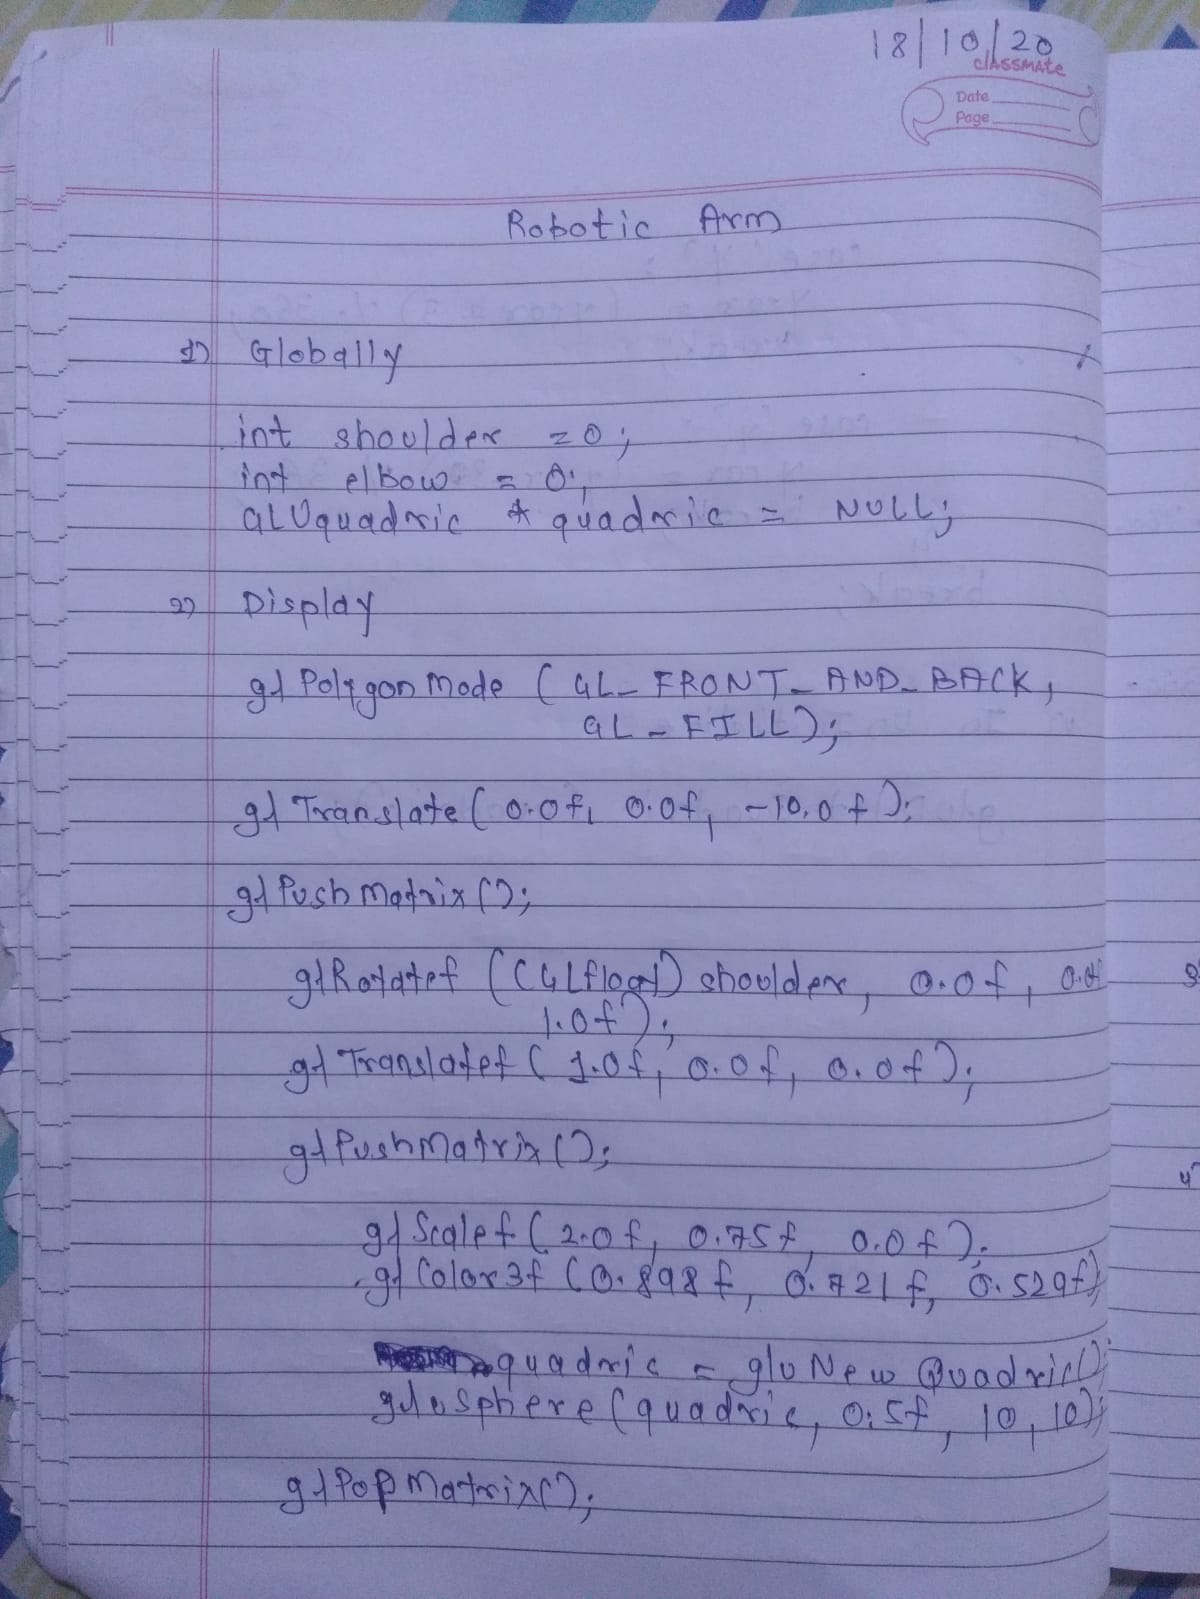 18/10/20
classmate
Date
Page
Robotic Arm
1) Globally
int shoulder = 0;
int elbow = 0;
GLUquadric * quadric = NULL;
2) Display
glPolygonMode (GL_FRONT_AND_BACK,
GL_FILL);
glTranslate(0.0f, 0.0f, -10.0f);
glPushMatrix();
glRotatef ((GLfloat) shoulder, 0.0f, 0.0f
1.0f);
glTranslatef (1.0f, 0.0f, 0.0f);
glPushMatrix();
glScalef (2.0f, 0.75f, 0.0f);
glColor3f (0.898f, 0.721f, 0.529f);
quadric = gluNewQuadric();
glusphere(quadric, 0.5f, 10, 10);
glPopMatrix();